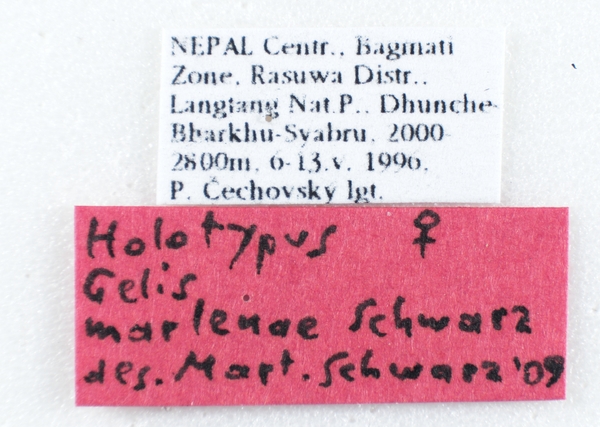 NEPAL Centr., Bagmati
Zone, Rasuwa Distr.,
Langtang Nat.P., Dhunche-
Bharkhu-Syabru, 2000-
2800m, 6-13.v. 1996,
P. Čechovský lgt.
Holotypus ♀
Gelis
marlenae Schwarz
des. Mart. Schwarz '09